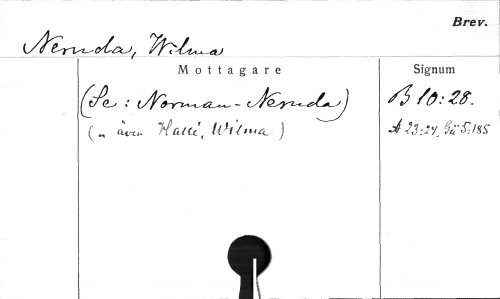 Brev.
Neruda, Wilma
Mottagare
Signum
(Se: Norman-Neruda)
B 10:28.
(„ även Hallé, Wilma)
A 23:24. Gü 5:185